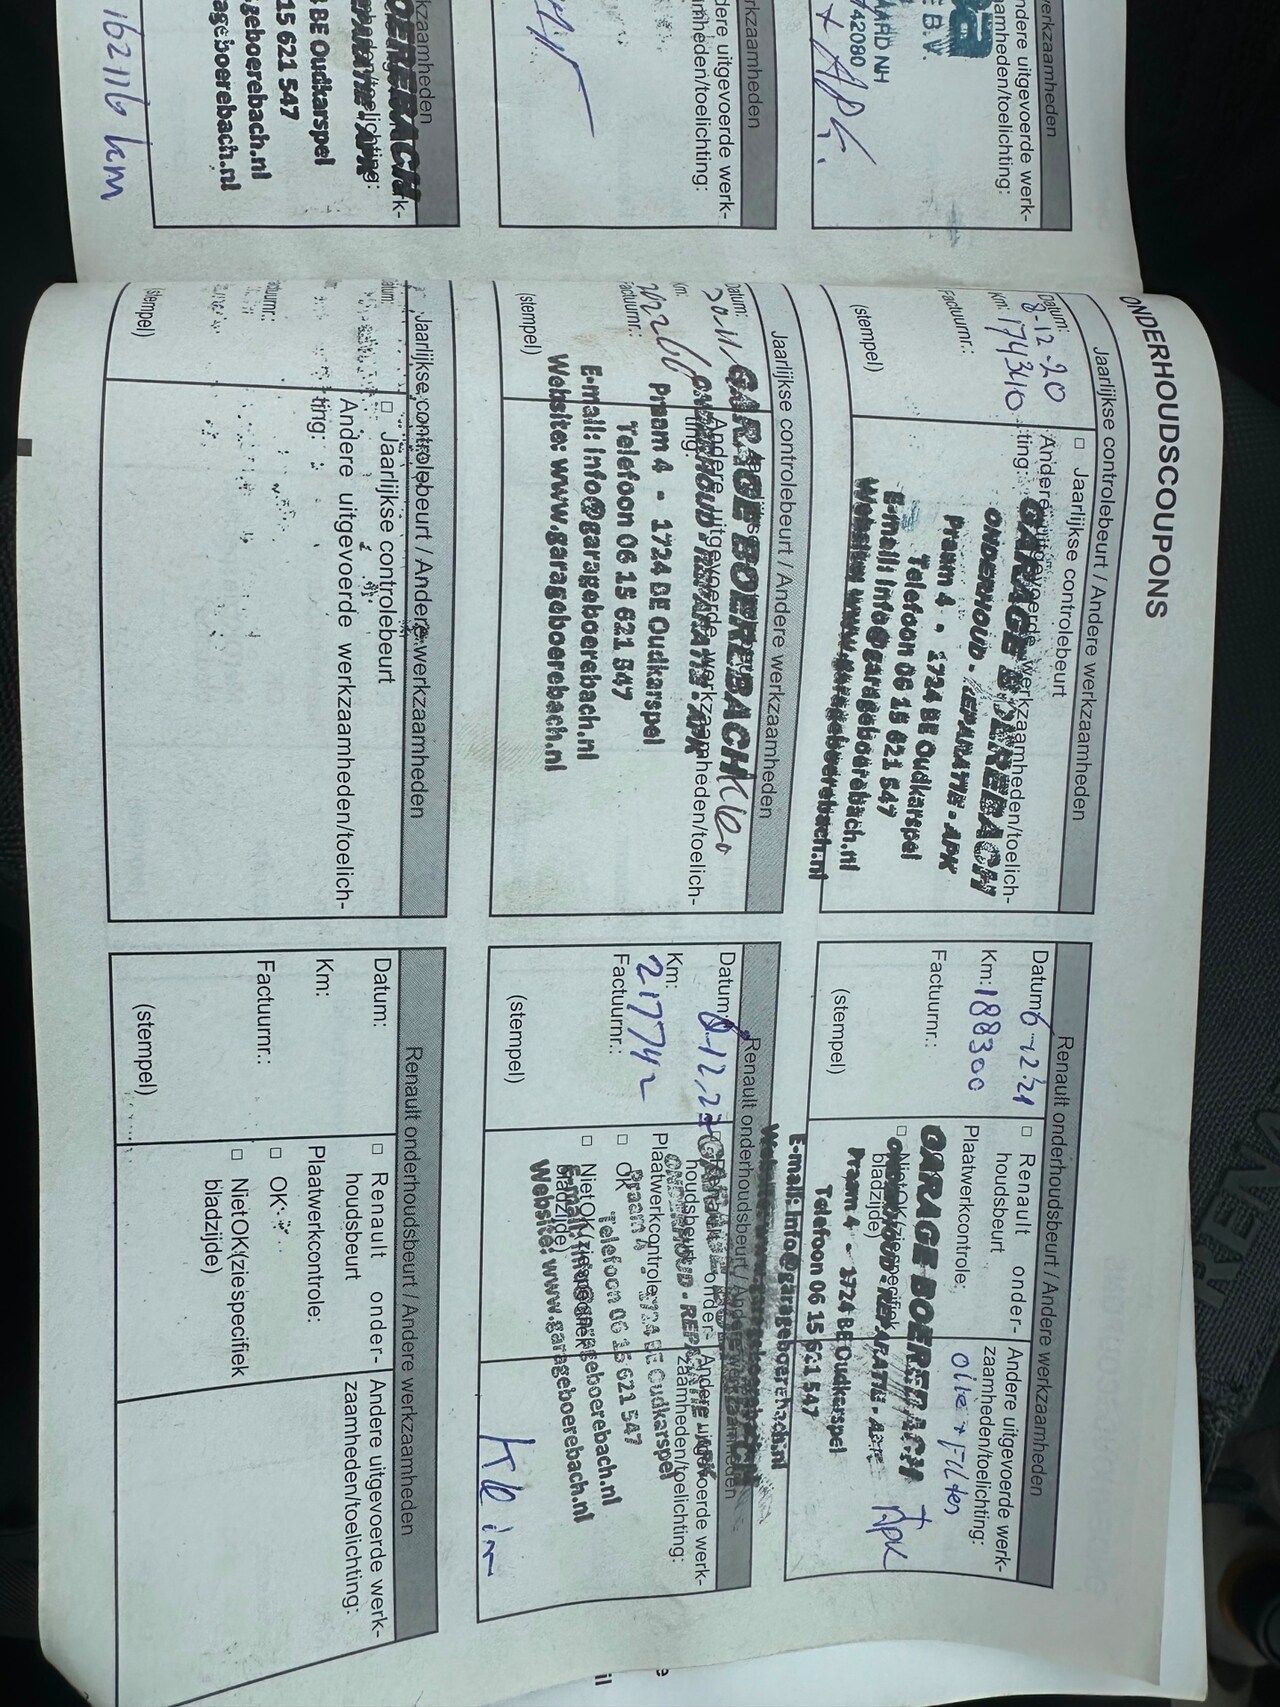 ONDERHOUDSCOUPONS
werkzaamheden
ndere uitgevoerde werk-
aamheden/toelichting:
E B.V.
AARD NH
42080
+ APK.
rkzaamheden
dere uitgevoerde werk-
mheden/toelichting:
kzaamheden
OEREBACH
BE Oudkarspel
15 621 547
geboerebach.nl
ageboerebach.nl
162116 km
Jaarlijkse controlebeurt / Andere werkzaamheden
Datum:
8-12-20
Km: 174340
Factuurnr.:
(stempel)
□ Jaarlijkse controlebeurt
Andere uitgevoerde werkzaamheden/toelich-
ting:
GARAGE BOEREBACH
ONDERHOUD - REPARATIE - APK
Praam 4 - 1724 BE Oudkarspel
Telefoon 06 15 621 547
E-mail: info@garageboerebach.nl
Website: www.garageboerebach.nl
Renault onderhoudsbeurt / Andere werkzaamheden
Datum: 6-12-21
Km: 188300
Factuurnr.:
(stempel)
□ Renault onder-
houdsbeurt
Plaatwerkcontrole:
□ Niet OK (zie specifiek
bladzijde)
Andere uitgevoerde werk-
zaamheden/toelichting:
Olie + Filter
+ Apk
GARAGE BOEREBACH
ONDERHOUD - REPARATIE - APK
Praam 4 - 1724 BE Oudkarspel
Telefoon 06 15 621 547
E-mail: info@garageboerebach.nl
Website: www.garageboerebach.nl
Jaarlijkse controlebeurt / Andere werkzaamheden
Datum:
Km:
Factuurnr.:
(stempel)
Andere uitgevoerde werkzaamheden/toelich-
ting:
GARAGE BOEREBACH
ONDERHOUD - REPARATIE - APK
Praam 4 - 1724 BE Oudkarspel
Telefoon 06 15 621 547
E-mail: info@garageboerebach.nl
Website: www.garageboerebach.nl
Renault onderhoudsbeurt / Andere werkzaamheden
Datum:
Km:
217742
Factuurnr.:
(stempel)
houdsbeurt
Plaatwerkcontrole:
□ OK
□ Niet OK (zie specifiek
bladzijde)
Andere uitgevoerde werk-
zaamheden/toelichting:
ONDERHOUD - REPARATIE - APK
Praam 4 - 1724 BE Oudkarspel
Telefoon 06 15 621 547
E-mail: info@garageboerebach.nl
Website: www.garageboerebach.nl
Jaarlijkse controlebeurt / Andere werkzaamheden
atum:
ctuurnr.:
(stempel)
□ Jaarlijkse controlebeurt
Andere uitgevoerde werkzaamheden/toelich-
ting:
Renault onderhoudsbeurt / Andere werkzaamheden
Datum:
Km:
Factuurnr.:
(stempel)
□ Renault onder-
houdsbeurt
Plaatwerkcontrole:
□ OK
□ Niet OK (zie specifiek
bladzijde)
Andere uitgevoerde werk-
zaamheden/toelichting:
RENA